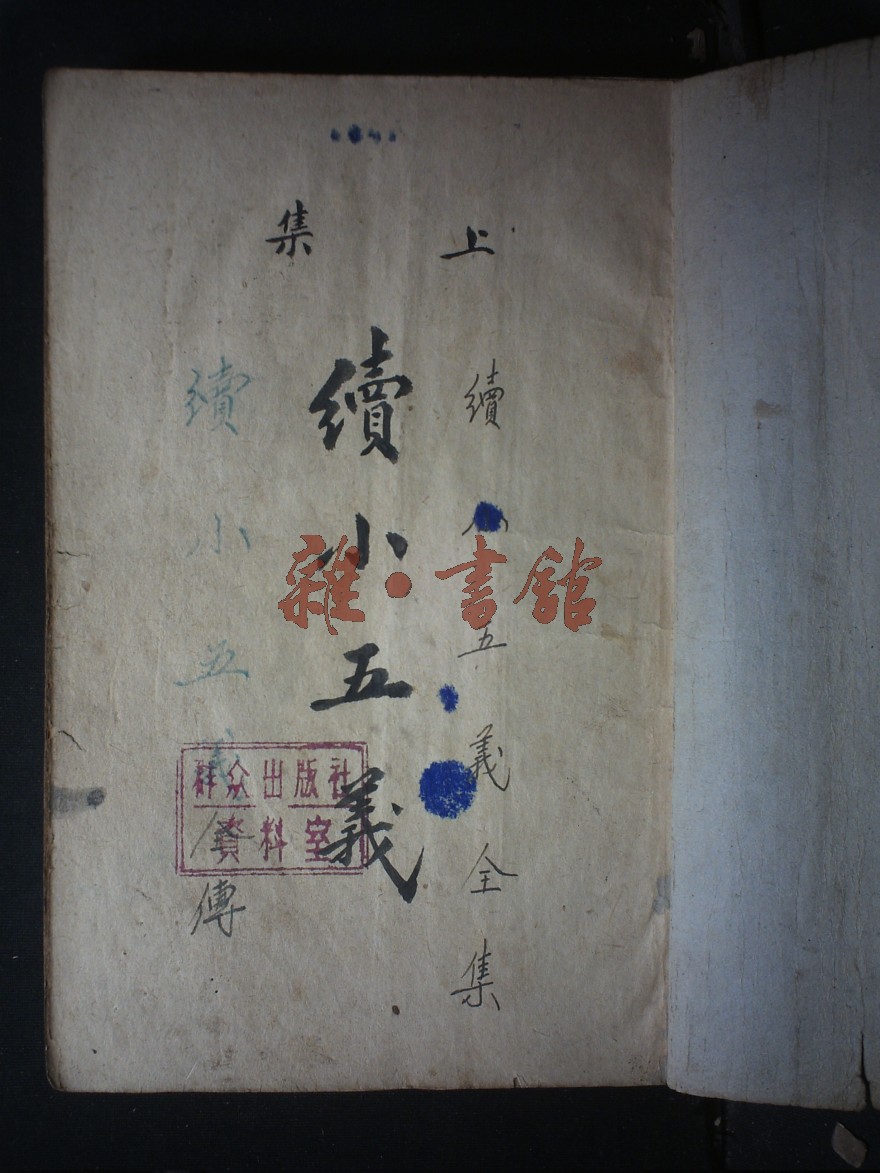 上集
續小五義全集
續小五義
續小五義全傳
群众出版社
資料室
雜·書館